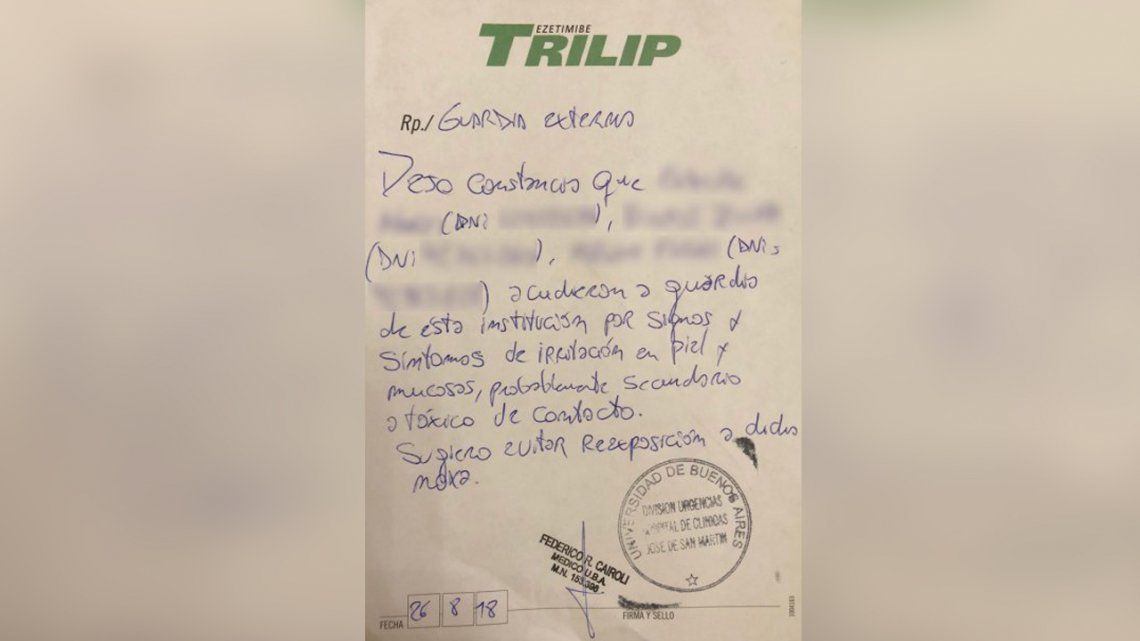 EZETIMIBE
TRILIP
Rp./ GUARDIA externa
Dejo constancia que
(DNI ),
(DNI ), (DNI:
) acudieron a guardia
de esta institución por signos y
síntomas de irritación en piel y
mucosas, probablemente secundario
a tóxico de contacto.
Sugiero evitar Reexposición a dicha
noxa.
UNIVERSIDAD DE BUENOS AIRES
DIVISION URGENCIAS
HOSPITAL DE CLINICAS
JOSE DE SAN MARTIN
FEDERICO R. CAIROLI
MEDICO U.B.A.
M.N. 153.396
FECHA 26 8 18
FIRMA Y SELLO